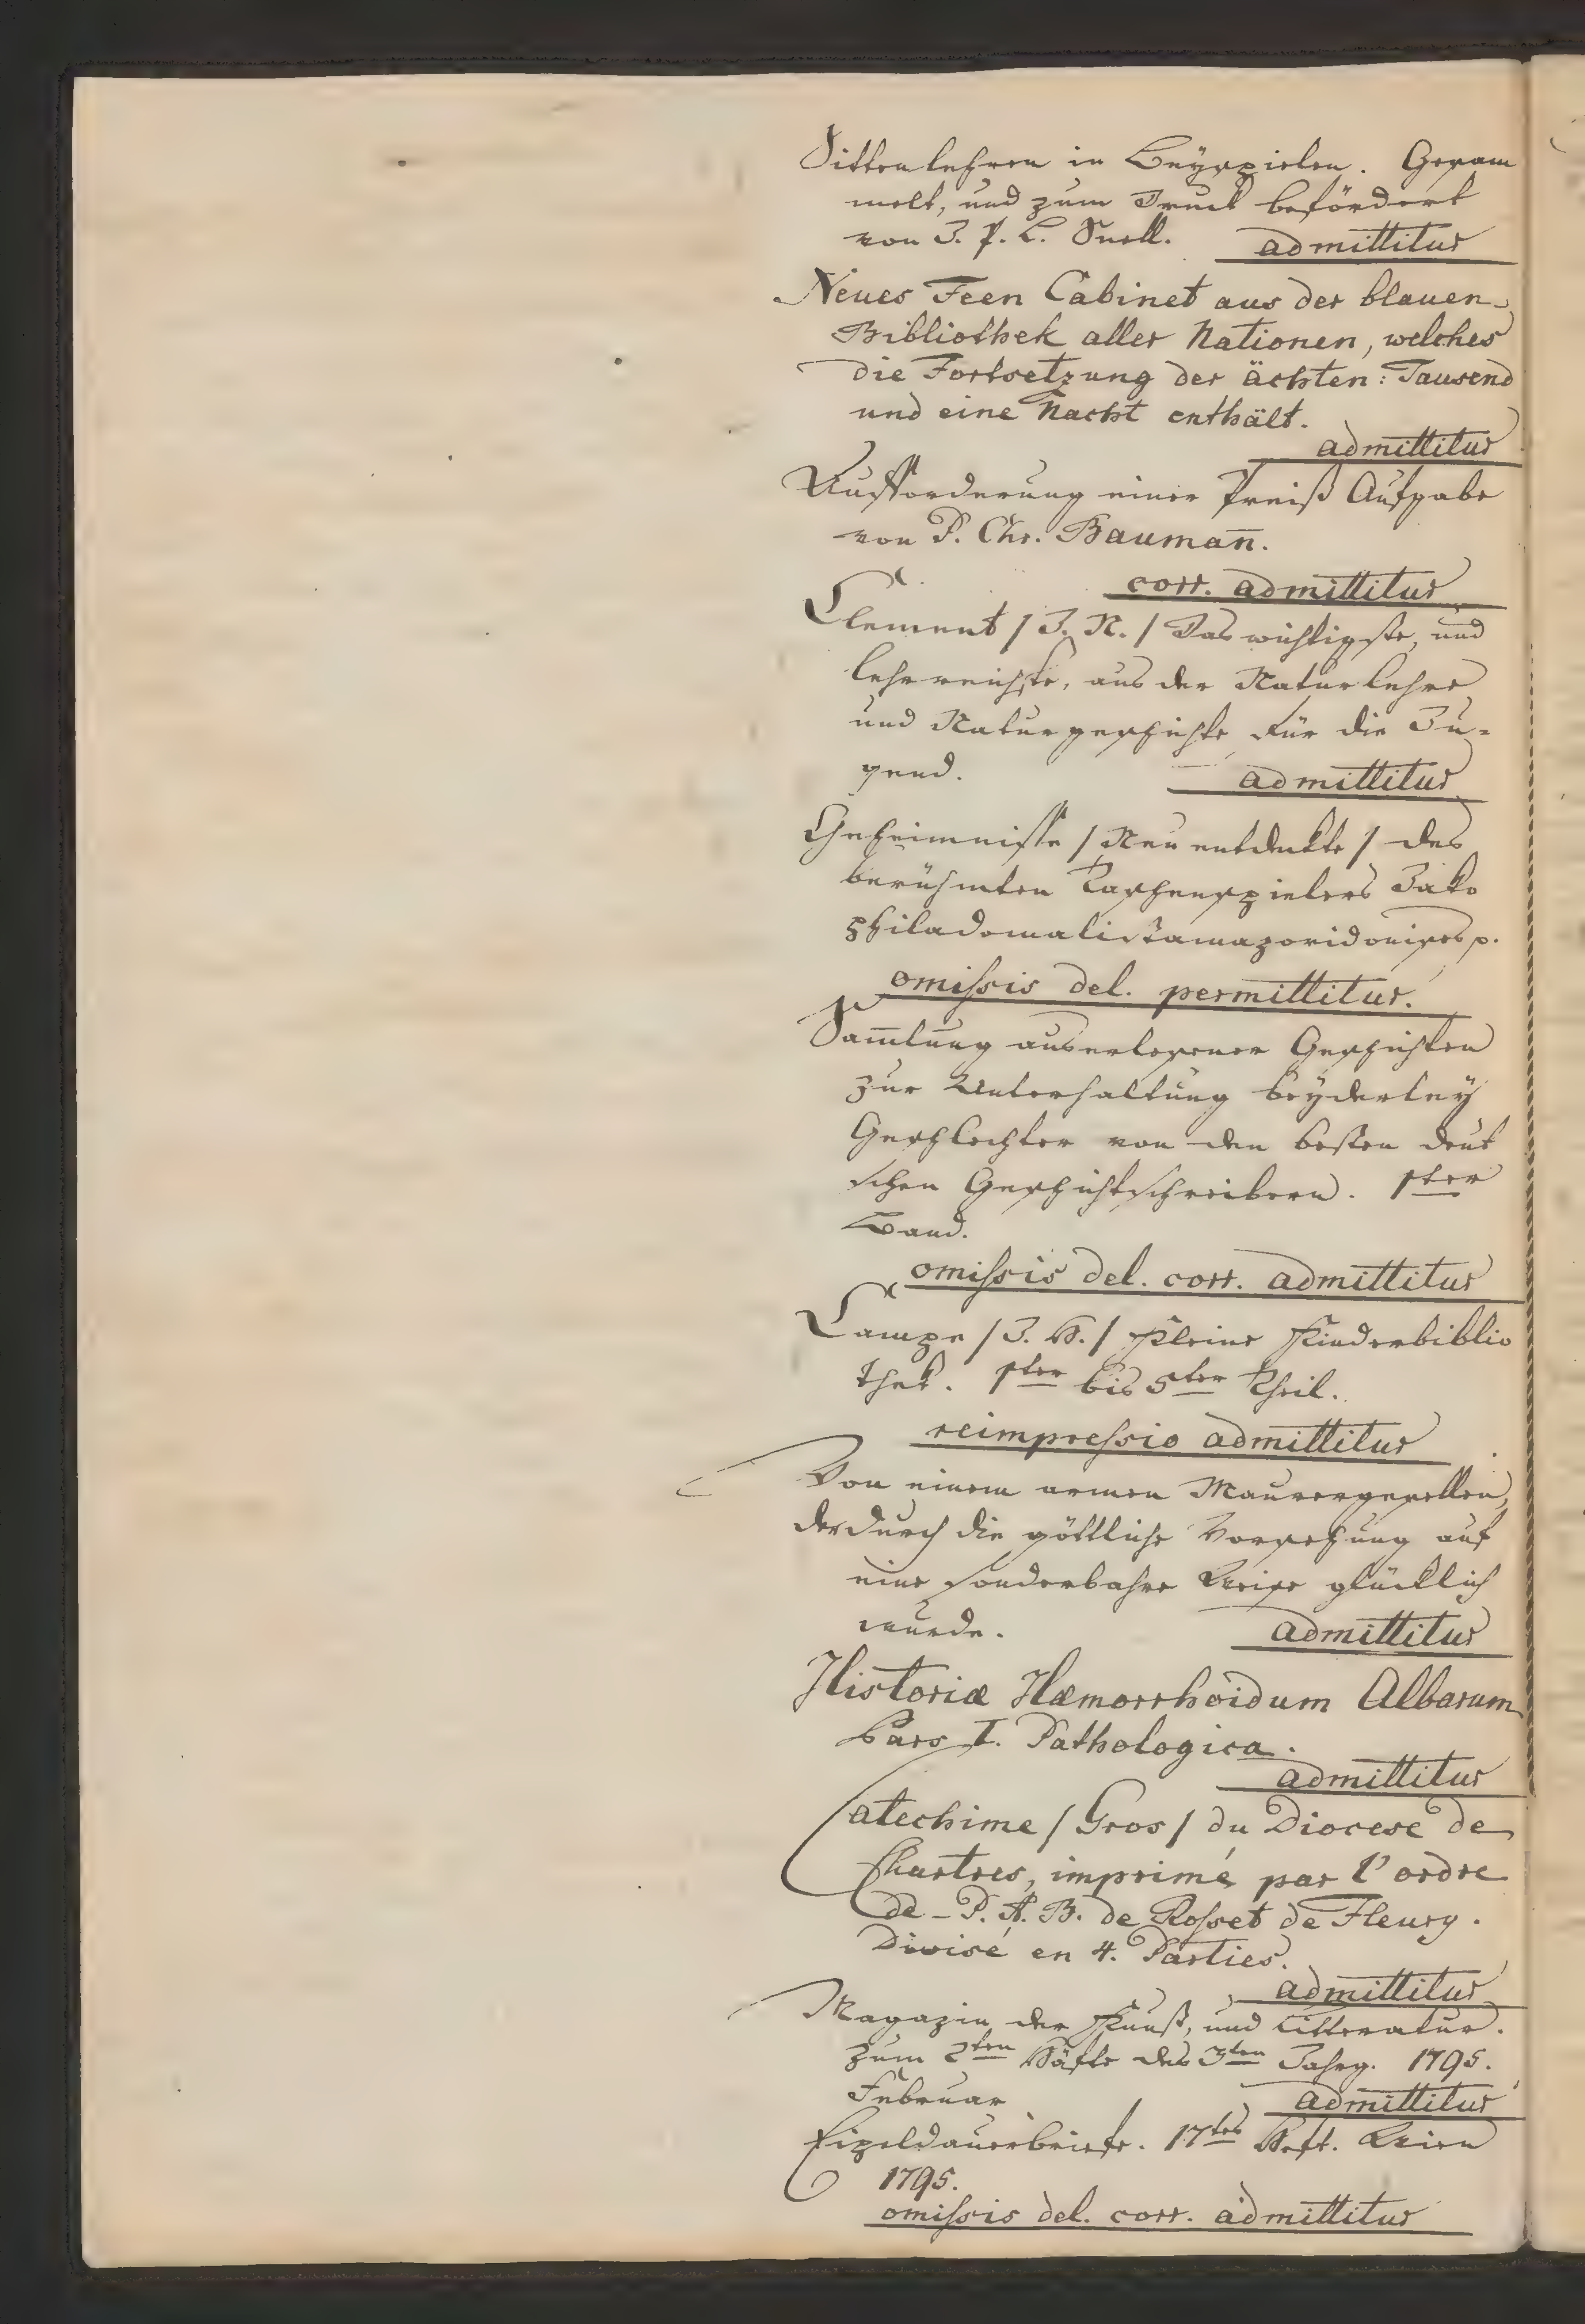 Sittenlehren in Beyspielen. Gesam
melt, und zum Druck befördert
von J. P. L. Snell. admittitur
Neues Feen Cabinet aus der blauen
Bibliothek aller Nationen, welches
die Fortsetzung der ächten: Tausend
und eine Nacht enthält.
admittitur
Aufforderung einer Preiß Aufgabe
von P. Chr. Baumañ.
corr. admittitur
Clement / J. N. / Das wichtigste, und
lehrreichste, aus der Naturlehre
und Naturgeschichte für die Ju-
gend. admittitur
Geheimnisse / Neu entdeckte / des
berühmten Taschenspielers Jako
philadomalistamazoridonises p.
omissis del. permittitur.
Sam̄lung auserlesener Geschichten
zur Unterhaltung beyderley
Geschlechter von den besten deut
schen Geschichtschreibern. 1ster
Band.
omissis del. corr. admittitur
Campe / J. H. / Kleine Kinderbiblio
thek. 1ter bis 5ter Theil.
reimpressio admittitur
Von einem armen Maurergesellen,
der durch die göttliche Vorsehung auf
eine sonderbahre Weise glücklich
wurde. admittitur
Historiæ Hæmorrhoidum Albarum
Pars I. Pathologica.
admittitur
Catechime / Gros / du Diocese de
Chartres, imprimé par l'ordre
de - P. A. B. de Rosset de Fleury.
Divisé en 4. Parties.
admittitur
Magazin der Kunst, und Litteratur.
zum 2ten Häfte des 3ten Jahrg. 1795.
Februar admittitur
Eipeldauerbriefe. 17tes Heft. Wien
1795.
omissis del. corr. admittitur